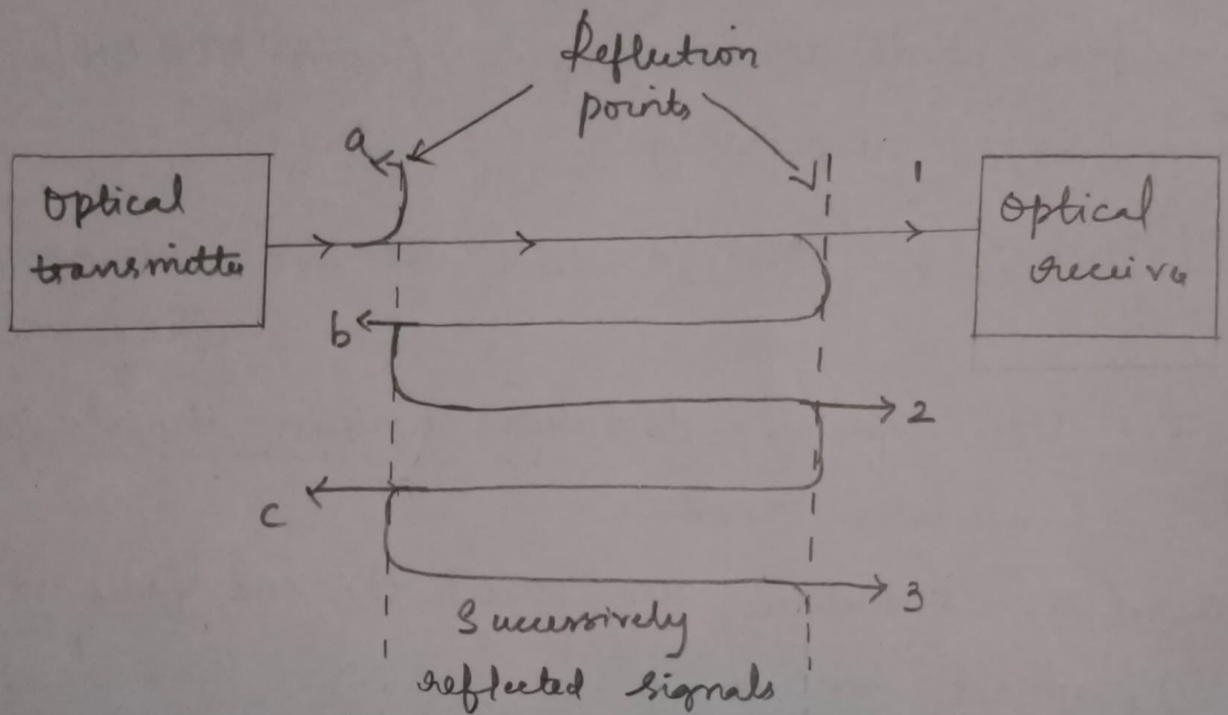 Reflection
points
a
1
Optical
transmitte
Optical
receive
b
2
c
3
Successively
reflected signals